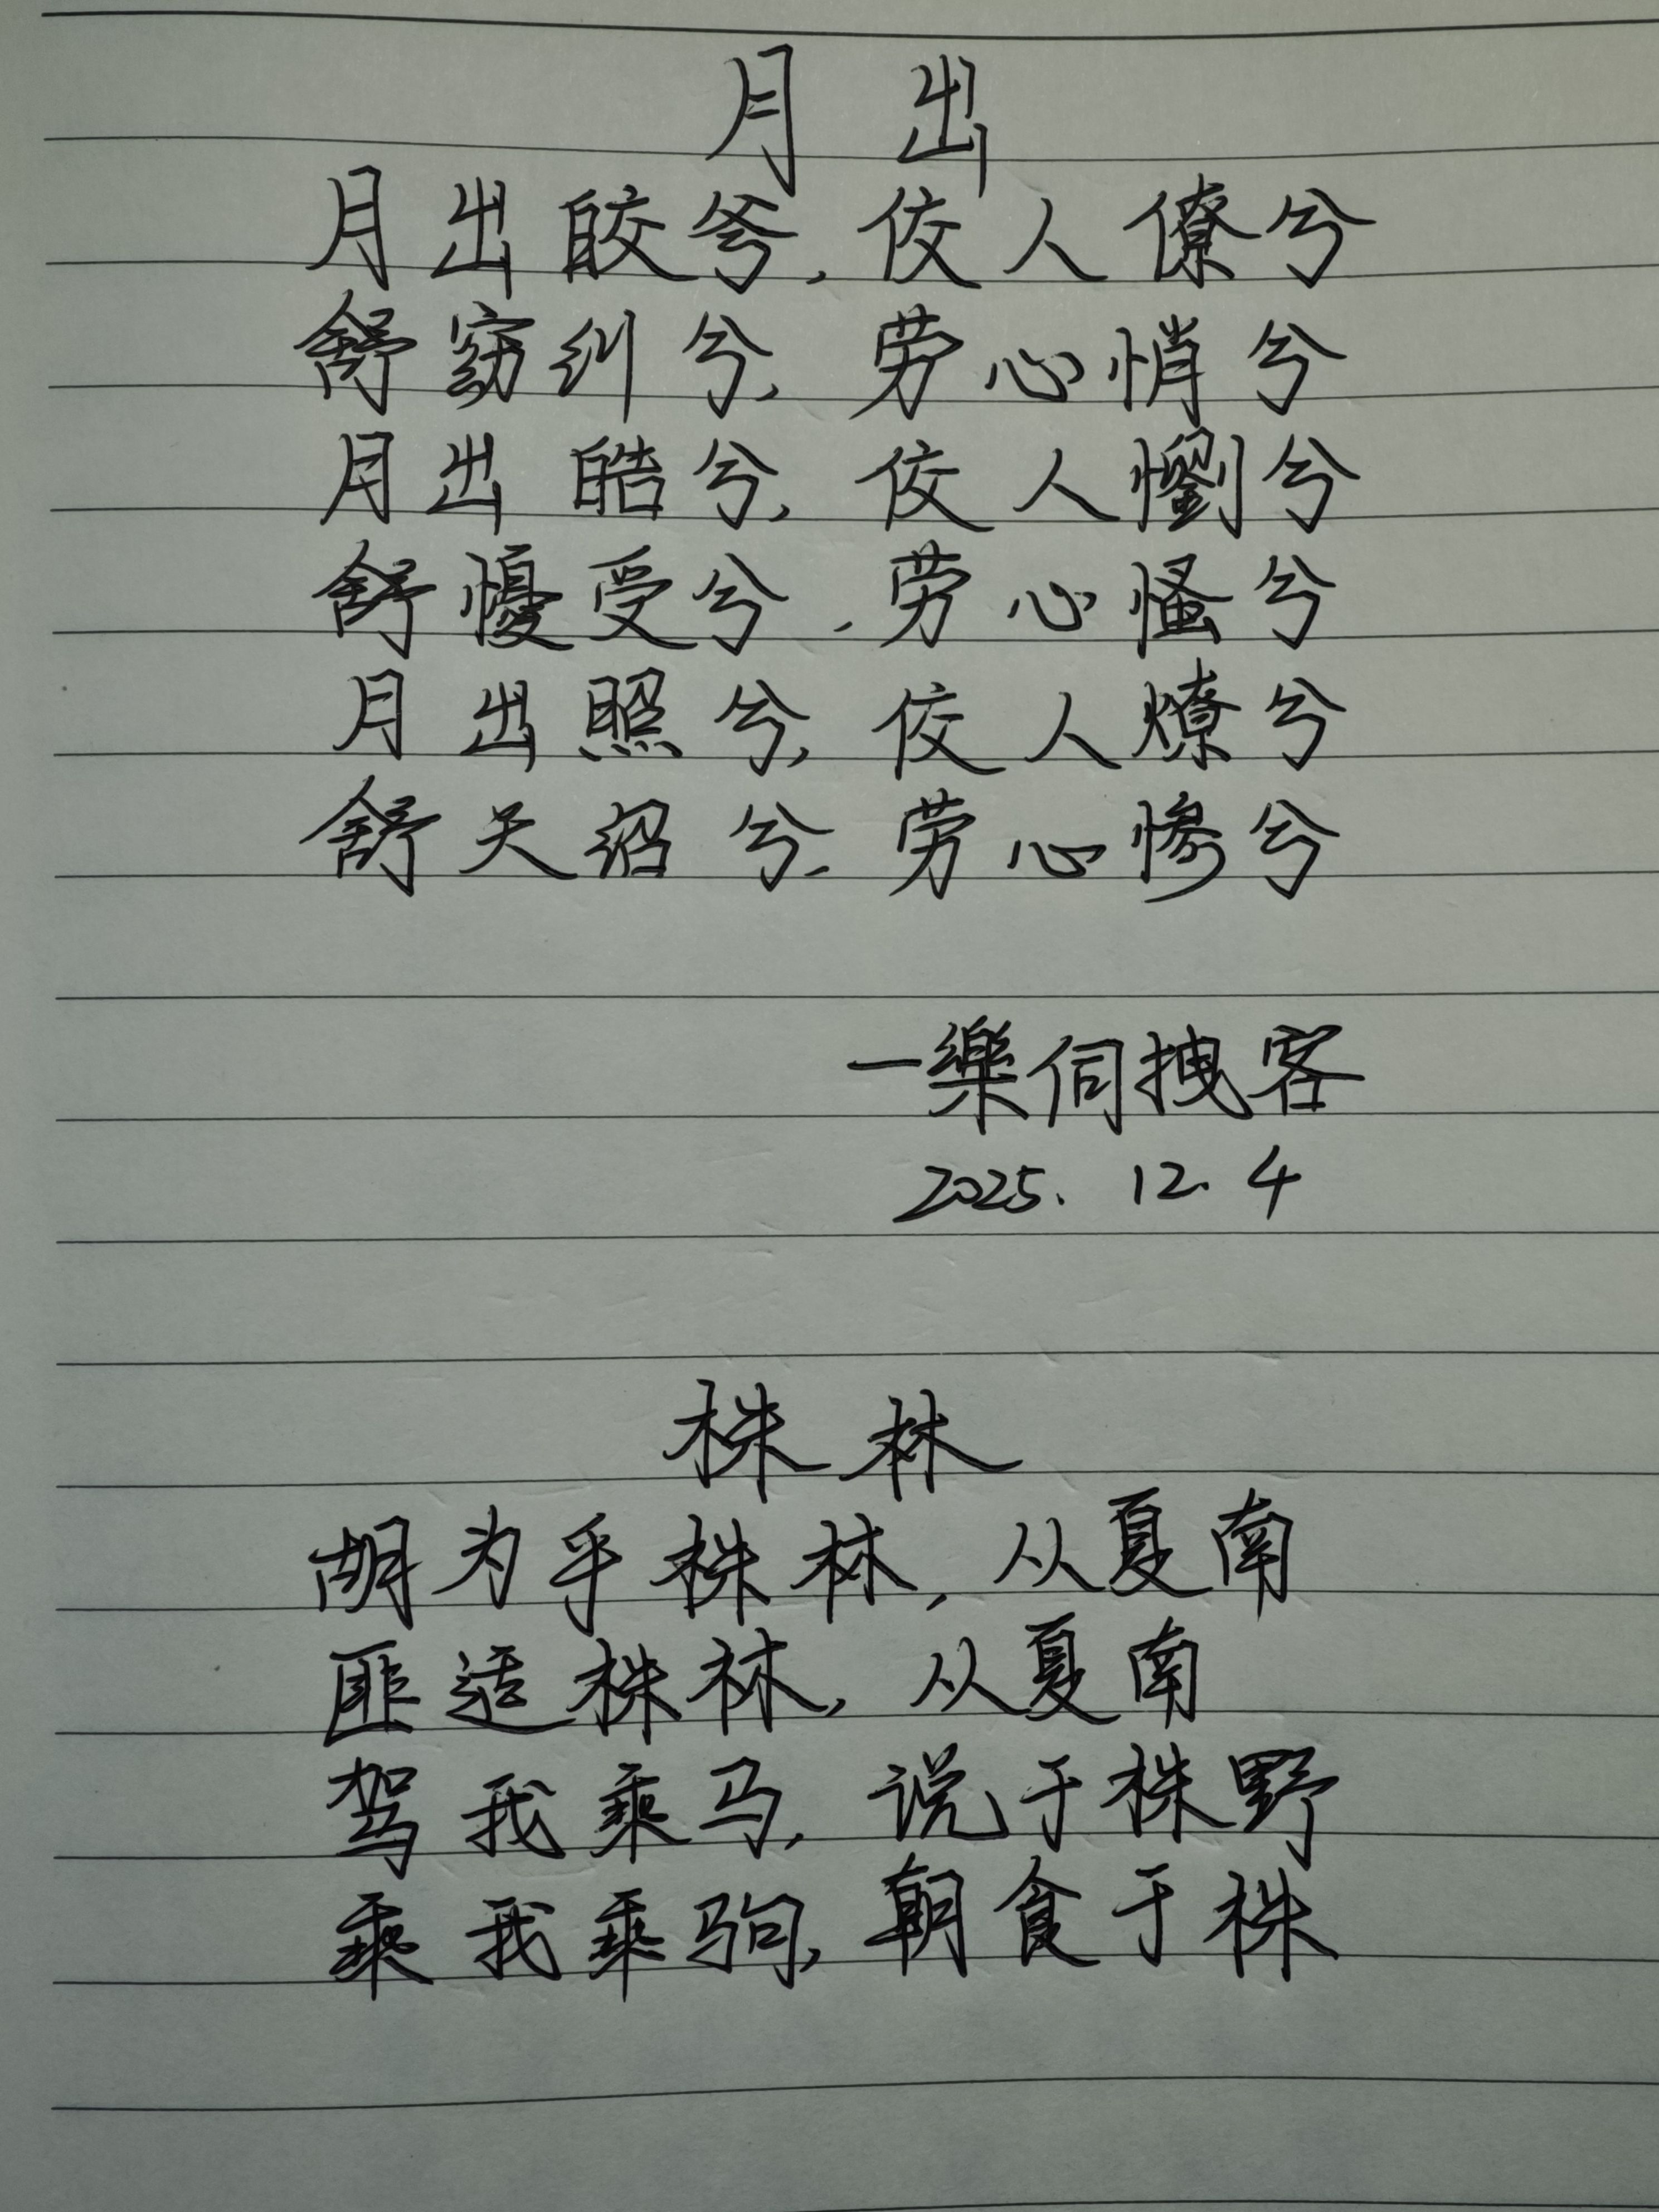 月出
月出皎兮,佼人僚兮
舒窈纠兮,劳心悄兮
月出皓兮,佼人懰兮
舒懮受兮,劳心慅兮
月出照兮,佼人燎兮
舒天绍兮,劳心惨兮
一樂伺拽客
2025.12.4
株林
胡为乎株林,从夏南
匪适株林,从夏南
驾我乘马,说于株野
乘我乘驹,朝食于株